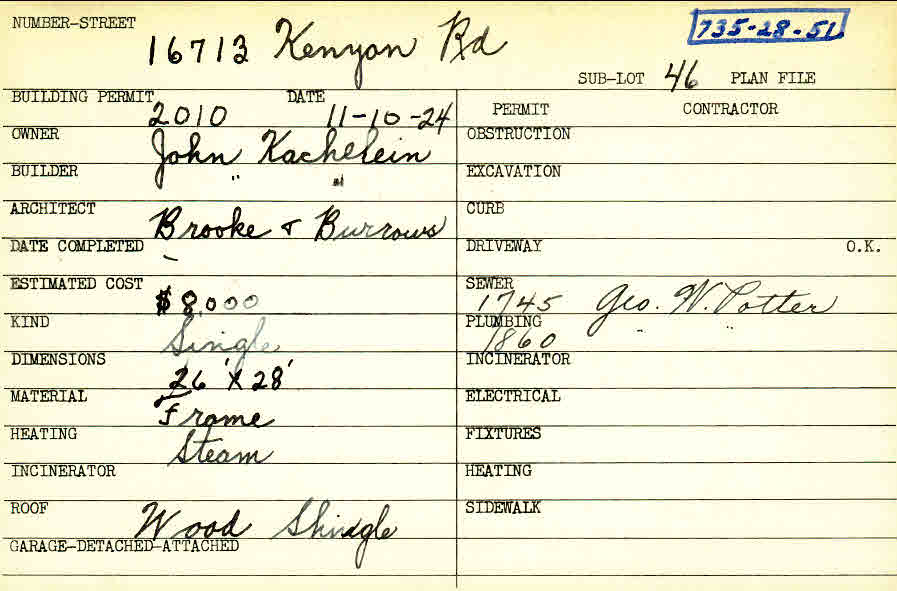 NUMBER-STREET 16713 Kenyon Rd 735-28-51
SUB-LOT 46 PLAN FILE
BUILDING PERMIT 2010 DATE 11-10-24
PERMIT CONTRACTOR
OWNER John Kachelein
OBSTRUCTION
BUILDER " "
EXCAVATION
ARCHITECT Brooke & Burrows
CURB
DATE COMPLETED -
DRIVEWAY O.K.
ESTIMATED COST $8,000
SEWER 1745 Geo. W. Potter
KIND Single
PLUMBING 1860 " "
DIMENSIONS 26' X 28'
INCINERATOR
MATERIAL Frame
ELECTRICAL
HEATING Steam
FIXTURES
INCINERATOR
HEATING
ROOF Wood Shingle
SIDEWALK
GARAGE-DETACHED-ATTACHED